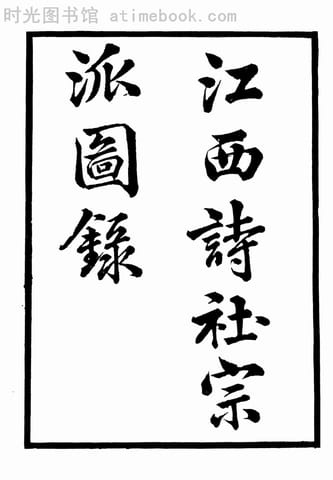 时光图书馆 atimebook.com
江西詩社宗
派圖錄